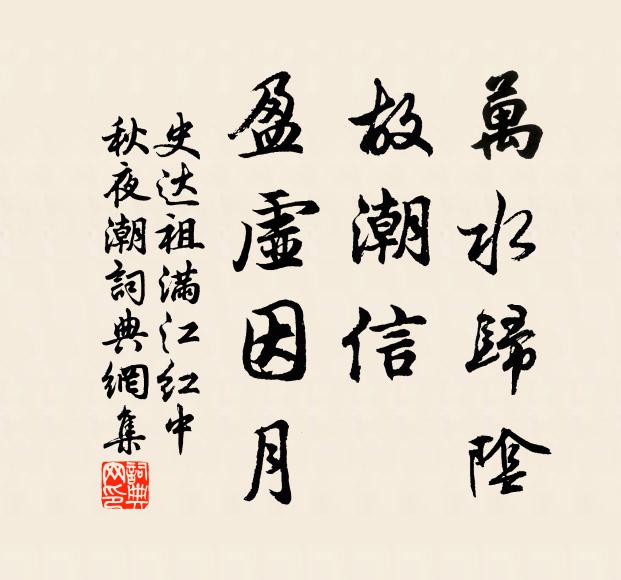 萬水歸陰
故潮信
盈虛因月
史达祖满江红中
秋夜潮詞典網集
詞典
网印